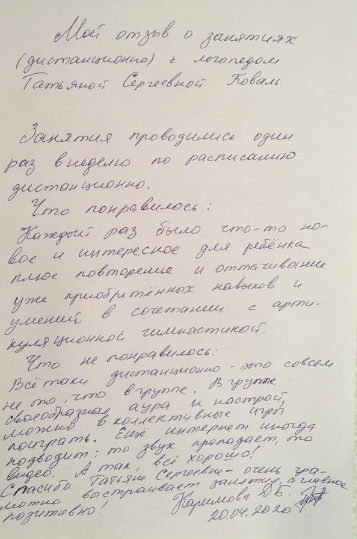 Мой отзыв о занятиях
(дистанционно) с логопедом
Татьяной Сергеевной Коваль.
Занятия проводились один
раз в неделю по расписанию
дистанционно.
Что понравилось:
Каждый раз было что-то но-
вое и интересное для ребёнка
плюс повторение и оттачивание
уже приобретённых навыков и
умений в сочетании с арти-
куляционной гимнастикой.
Что не понравилось:
Всё таки дистанционно - это совсем
не то, что в группе. В группе
своеобразная аура и настрой,
можно в коллективные игры
поиграть. Ещё интернет иногда
подводит: то звук пропадает, то
видео. А так, всё хорошо!
Спасибо Татьяне Сергеевне - очень гра-
мотно выстраивает занятия, а главное
позитивно! Каримова Д.В.
20.04.2020